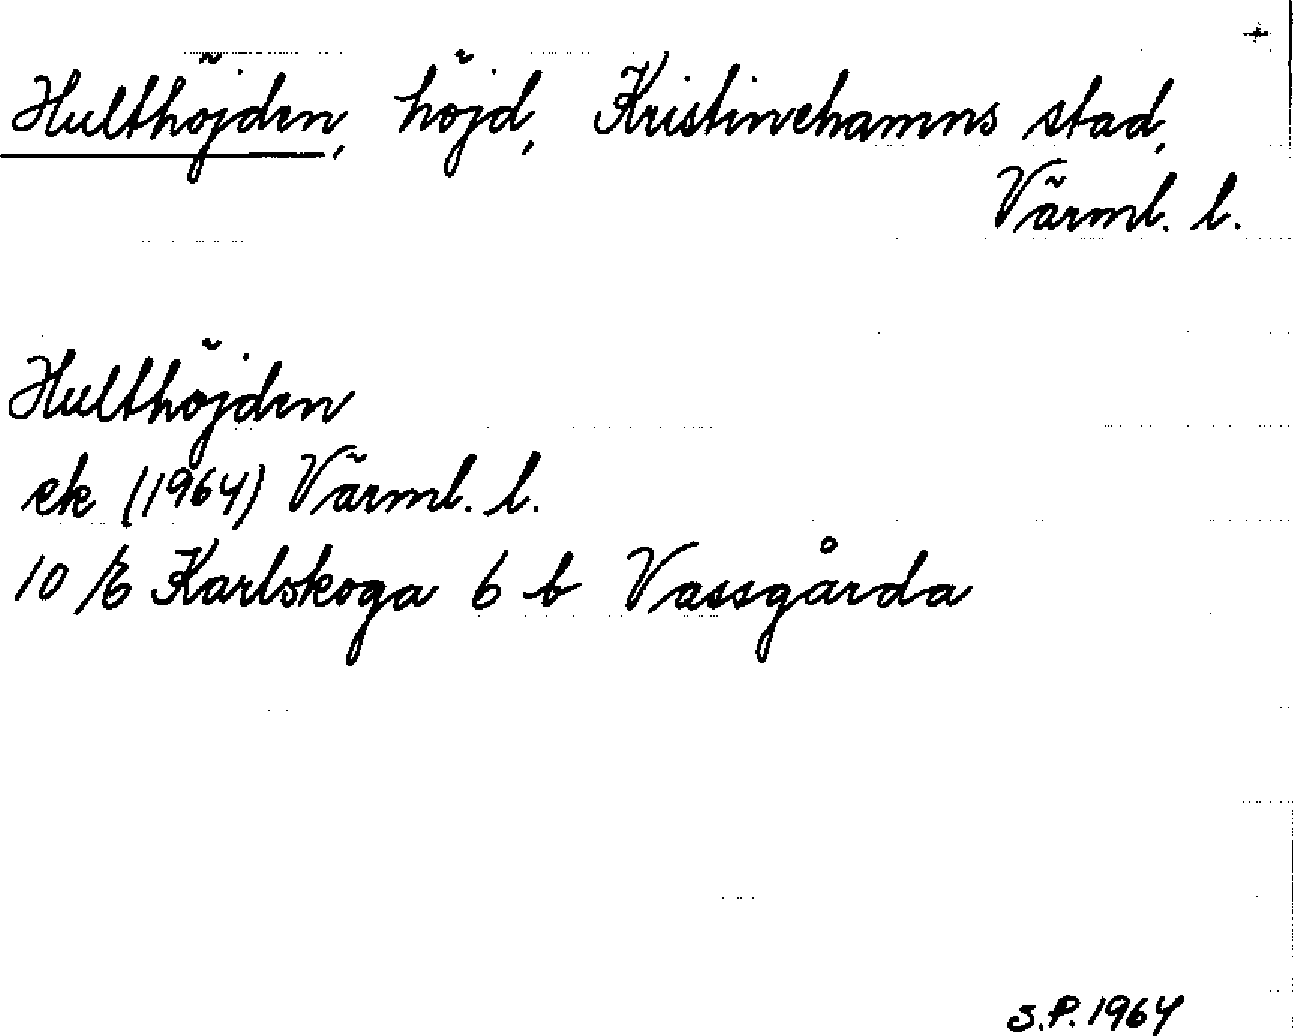 Hulthöjden, höjd, Kristinehamns stad,
Värml. l.
Hulthöjden
ek (1964) Värml. l.
10 E Karlskoga 6 b Vassgårda
S.P. 1964